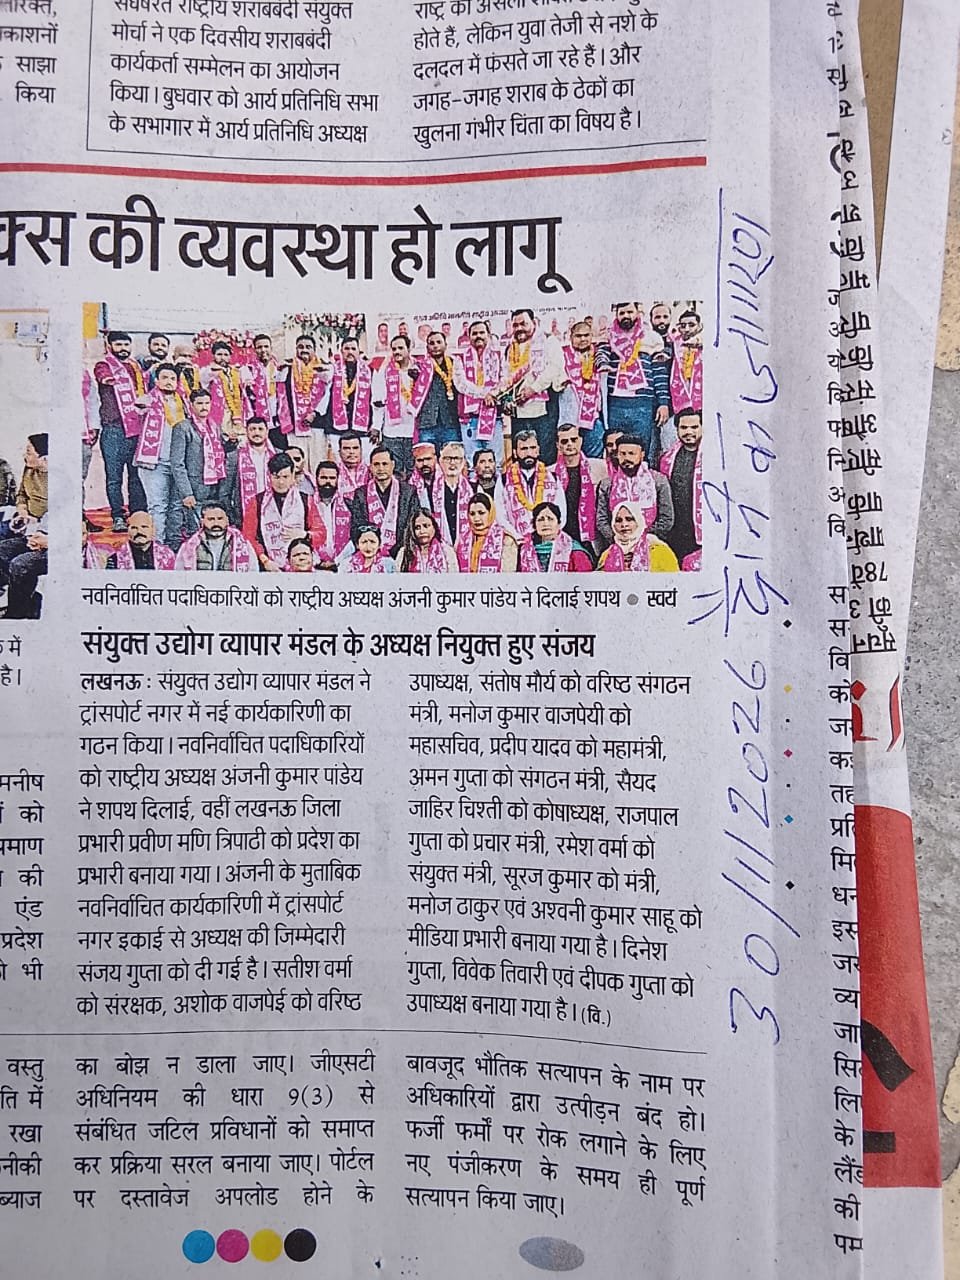 संघर्षरत राष्ट्रीय शराबबंदी संयुक्त
मोर्चा ने एक दिवसीय शराबबंदी
कार्यकर्ता सम्मेलन का आयोजन
किया। बुधवार को आर्य प्रतिनिधि सभा
के सभागार में आर्य प्रतिनिधि अध्यक्ष
होते हैं, लेकिन युवा तेजी से नशे के
दलदल में फंसते जा रहे हैं। और
जगह-जगह शराब के ठेकों का
खुलना गंभीर चिंता का विषय है।
साझा
किया
की व्यवस्था हो लागू
नवनिर्वाचित पदाधिकारियों को राष्ट्रीय अध्यक्ष अंजनी कुमार पांडेय ने दिलाई शपथ ● स्वयं
संयुक्त उद्योग व्यापार मंडल के अध्यक्ष नियुक्त हुए संजय
लखनऊ : संयुक्त उद्योग व्यापार मंडल ने
ट्रांसपोर्ट नगर में नई कार्यकारिणी का
गठन किया। नवनिर्वाचित पदाधिकारियों
को राष्ट्रीय अध्यक्ष अंजनी कुमार पांडेय
ने शपथ दिलाई, वहीं लखनऊ जिला
प्रभारी प्रवीण मणि त्रिपाठी को प्रदेश का
प्रभारी बनाया गया। अंजनी के मुताबिक
नवनिर्वाचित कार्यकारिणी में ट्रांसपोर्ट
नगर इकाई से अध्यक्ष की जिम्मेदारी
संजय गुप्ता को दी गई है। सतीश वर्मा
को संरक्षक, अशोक वाजपेई को वरिष्ठ
उपाध्यक्ष, संतोष मौर्य को वरिष्ठ संगठन
मंत्री, मनोज कुमार वाजपेयी को
महासचिव, प्रदीप यादव को महामंत्री,
अमन गुप्ता को संगठन मंत्री, सैयद
जाहिर चिश्ती को कोषाध्यक्ष, राजपाल
गुप्ता को प्रचार मंत्री, रमेश वर्मा को
संयुक्त मंत्री, सूरज कुमार को मंत्री,
मनोज ठाकुर एवं अश्वनी कुमार साहू को
मीडिया प्रभारी बनाया गया है। दिनेश
गुप्ता, विवेक तिवारी एवं दीपक गुप्ता को
उपाध्यक्ष बनाया गया है। (वि.)
में
है।
मनीष
को
की
एंड
प्रदेश
भी
वस्तु
में
रखा
ब्याज
का बोझ न डाला जाए। जीएसटी
अधिनियम की धारा 9(3) से
संबंधित जटिल प्रविधानों को समाप्त
कर प्रक्रिया सरल बनाया जाए। पोर्टल
पर दस्तावेज अपलोड होने के
बावजूद भौतिक सत्यापन के नाम पर
अधिकारियों द्वारा उत्पीड़न बंद हो।
फर्जी फर्मों पर रोक लगाने के लिए
नए पंजीकरण के समय ही पूर्ण
सत्यापन किया जाए।
30/1/2026 दैनिक जागरण